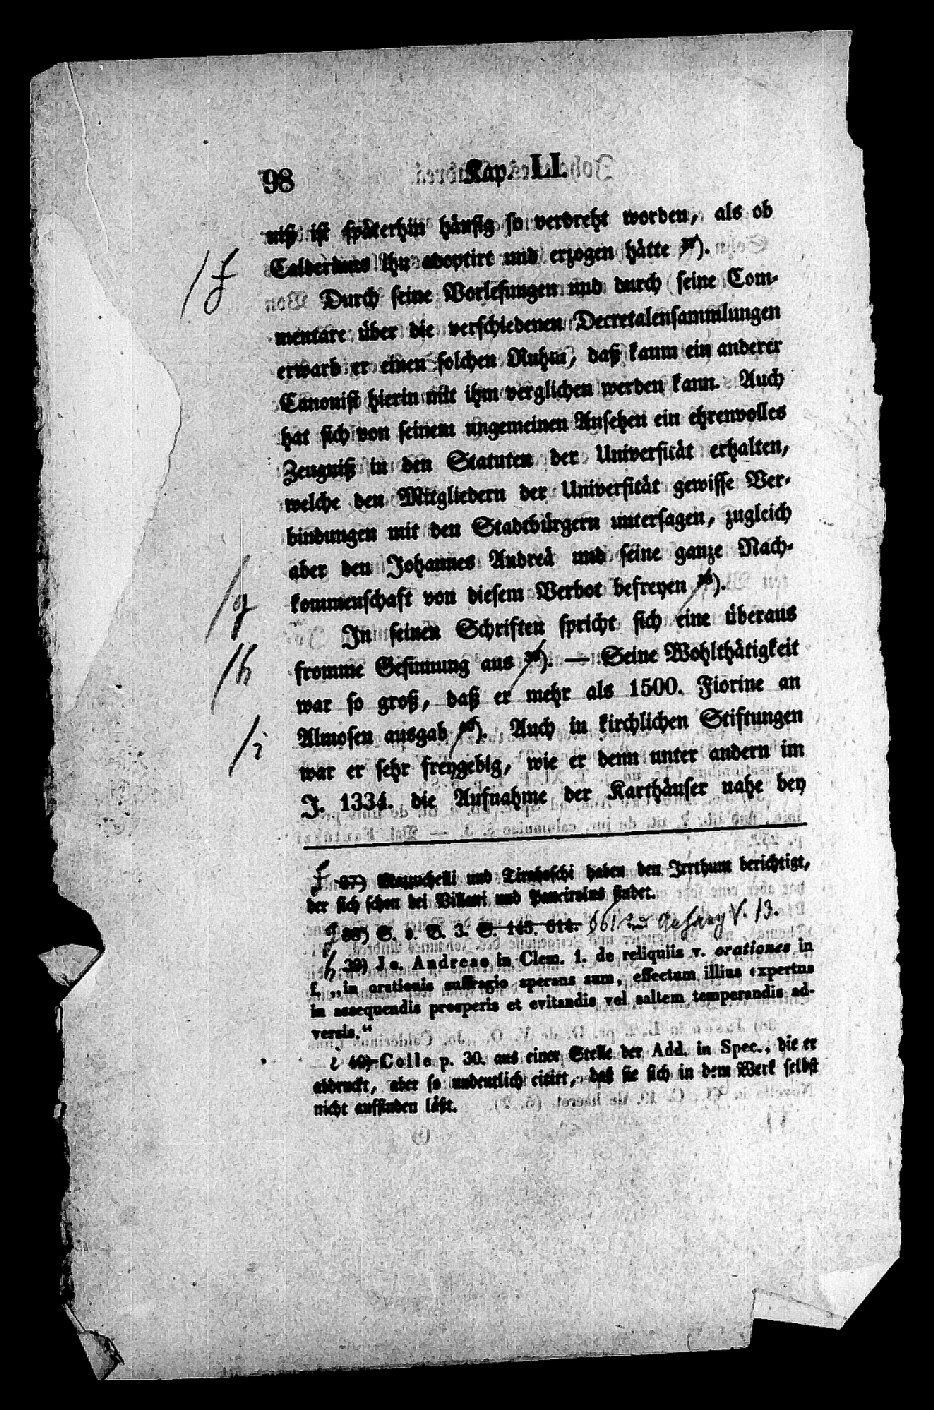 98 Kap. LI.
niß ist späterhin häufig so verdreht worden, als ob
Calderinus ihn adoptirt und erzogen hätte 37).
/f
Durch seine Vorlesungen und durch seine Com-
mentare über die verschiedenen Decretalensammlungen
erwarb er einen solchen Ruhm, daß kaum ein anderer
Canonist hierin mit ihm verglichen werden kann. Auch
hat sich von seinem ungemeinen Ansehen ein ehrenvolles
Zeugniß in den Statuten der Universität erhalten,
welche den Mitgliedern der Universität gewisse Ver-
bindungen mit den Stadtbürgern untersagen, zugleich
aber den Johannes Andreä und seine ganze Nach-
kommenschaft von diesem Verbot befreyen 38).
/g
In seinen Schriften spricht sich eine überaus
fromme Gesinnung aus 39). — Seine Wohlthätigkeit
/h
war so groß, daß er mehr als 1500. Fiorine an
Almosen ausgab 40). Auch in kirchlichen Stiftungen
/i
war er sehr freygebig, wie er denn unter andern im
J. 1334. die Aufnahme der Karthäuser nahe bey
f 37) Mazzuchelli und Tiraboschi haben den Irrthum berichtigt,
der sich schon bei Villani und Pancirolus findet.
g 38) S. o. B. 3. S. 145. 614. V. 13.
h 39) Jo. Andreae in Clem. 1. de reliquiis v. orationes in
f. „in orationis suffragio sperans sum, effectum illius expertus
in assequendis prosperis et evitandis vel saltem temperandis ad-
versis.“
i 40) Colle p. 30. aus einer Stelle der Add. in Spec., die er
abdruckt, aber so undeutlich citirt, daß sie sich in dem Werk selbst
nicht auffinden läßt.